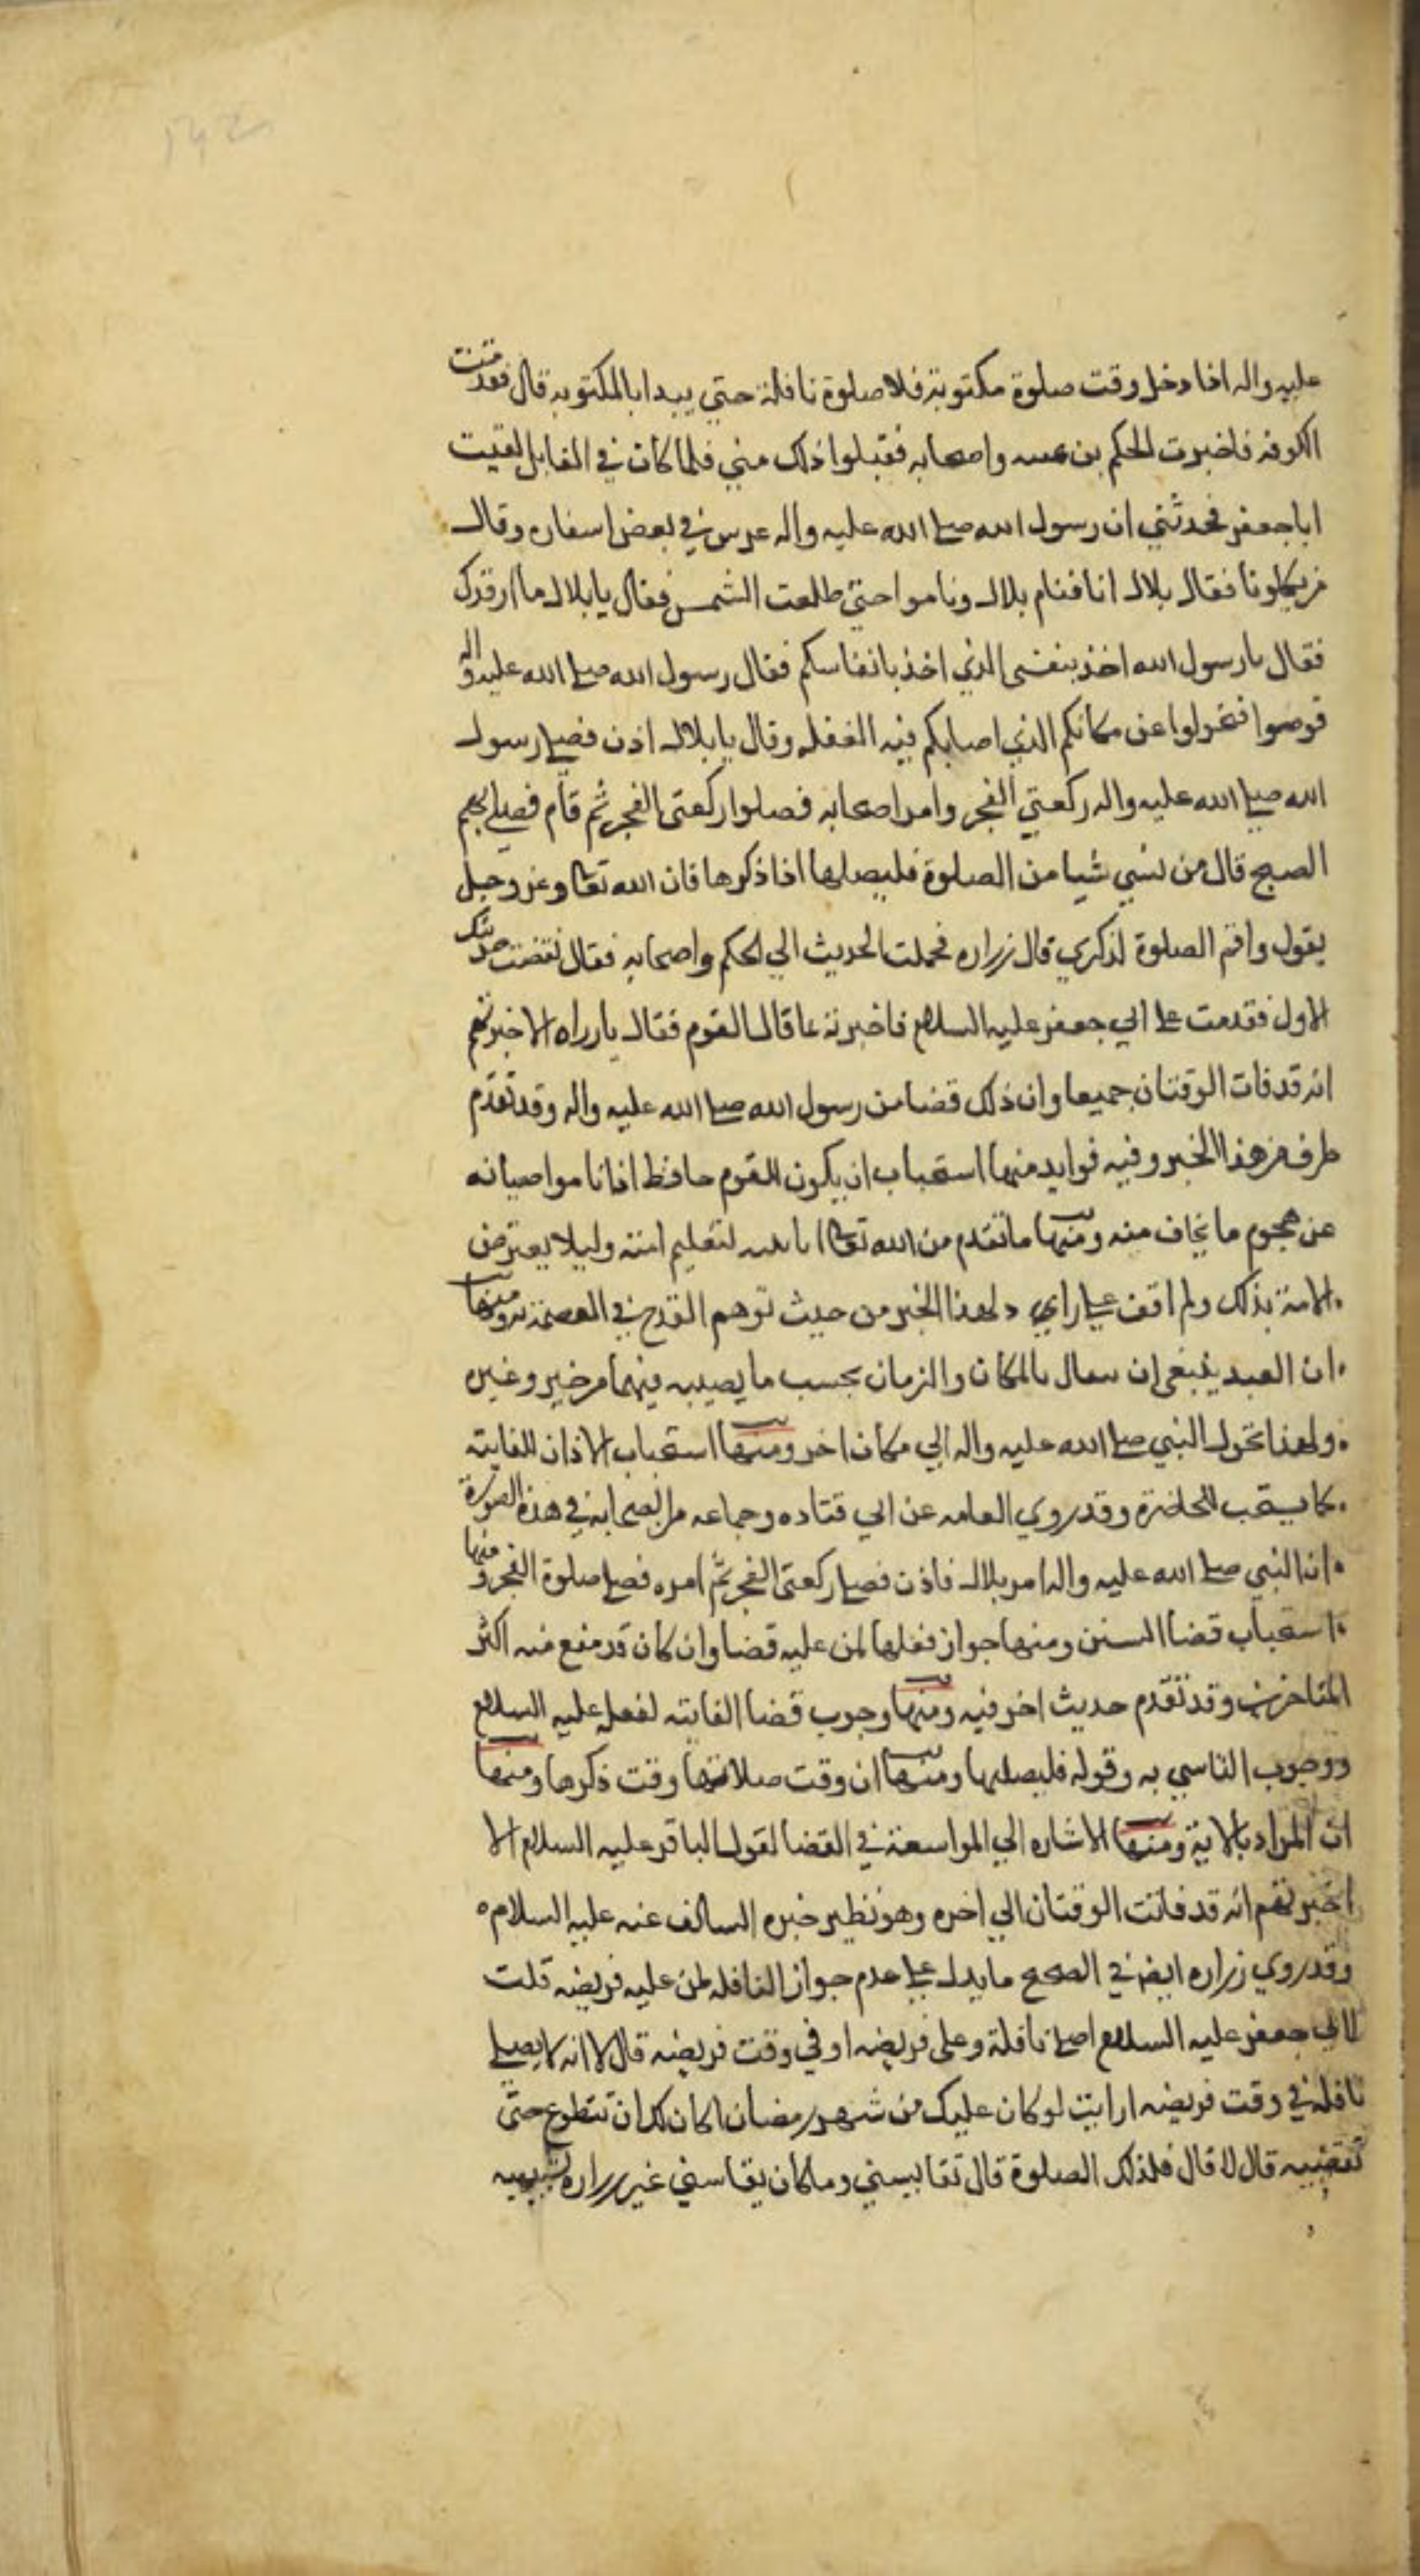 عليه واله اذا دخل وقت صلوة مكتوبة فلا صلوة نافلة حتي يبدا بالمكتوبه قال فقدمت
الكوفه فاخبرت الحكم بن عسه واصحابه فقبلوا ذلك مني فلما كان في القابل لقيت
ابا جعفر فحدثني ان رسول الله صلى الله عليه واله عرس في بعض اسفاره وقال
من يكلونا فقال بلال انا فنام بلال وناموا حتي طلعت الشمس فقال يا بلال ما ارقدك
فقال يا رسول الله اخذ بنفسي الذي اخذ بانفاسكم فقال رسول الله صلى الله عليه واله
قوموا فتحولوا عن مكانكم الذي اصابكم فيه الغفله وقال يا بلال اذن فصلى رسول
الله صلى الله عليه واله ركعتي الفجر وامر اصحابه فصلوا ركعتي الفجر ثم قام فصلى بهم
الصبح قال من نسي شيا من الصلوة فليصلها اذا ذكرها فان الله تعا وعز وجل
يقول واقم الصلوة لذكري قال زراره فحملت الحديث الي الحكم واصحابه فقال نقضت حديثك
الاول فقدمت على ابي جعفر عليه السلام فاخبرته بما قال القوم فقال يا زراره الا اخبرتهم
انه قد فات الوقتان جميعا وان ذلك قضا من رسول الله صلى الله عليه واله وقد تقدم
طرف من هذا الخبر وفيه فوايد منها استحباب ان يكون للقوم حافظ اذا ناموا صيانه
عن هجوم ما يخاف منه ومنها ما تقدم من الله تعا انامه لتعليم امته وليلا يعترض
الامة بذلك ولم اقف على راي لهذا الخبر من حيث توهم القدح في العصمة به ومنها
ان العبد ينبغي ان يتفال بالمكان والزمان بحسب ما يصيبه فيهما من خير وغيره
ولهذا تحول النبي صلى الله عليه واله الي مكان اخر ومنها استحباب الاذان للفايته
كما يستحب للحاضرة وقد روي العامه عن ابي قتاده وجماعه من الصحابه في هذه الصورة
ان النبي صلى الله عليه واله امر بلال فاذن فصلى ركعتي الفجر ثم امره فصلى صلوة الفجر ومنها
استحباب قضا السنن ومنها جواز فعلها لمن عليه قضا وان كان قد منع منه اكثر
المتاخرين وقد تقدم حديث اخر فيه ومنها وجوب قضا الفايته لفعله عليه السلام
ووجوب التاسي به وقوله فليصليها ومنها ان وقت صلاتها وقت ذكرها ومنها
ان المراد بالاية ومنها الاشاره الي المواسعة في القضا لقول الباقر عليه السلام الا
اخبرتهم انه قد فاتت الوقتان الي اخره وهو نظير خبره السالف عنه عليه السلام
وقد روي زراره ايضا في الصحيح ما يدل على عدم جواز النافله لمن عليه فريضه قلت
لابي جعفر عليه السلام اصلي نافلة وعلى فريضه او في وقت فريضه قال لا انه لا يصلي
نافلة في وقت فريضه ارايت لو كان عليك من شهر رمضان اكان لك ان تتطوع حتى
تقضيه قال لا قال فلذلك الصلوة قال تقايسني وما كان يقاسني غير زراره